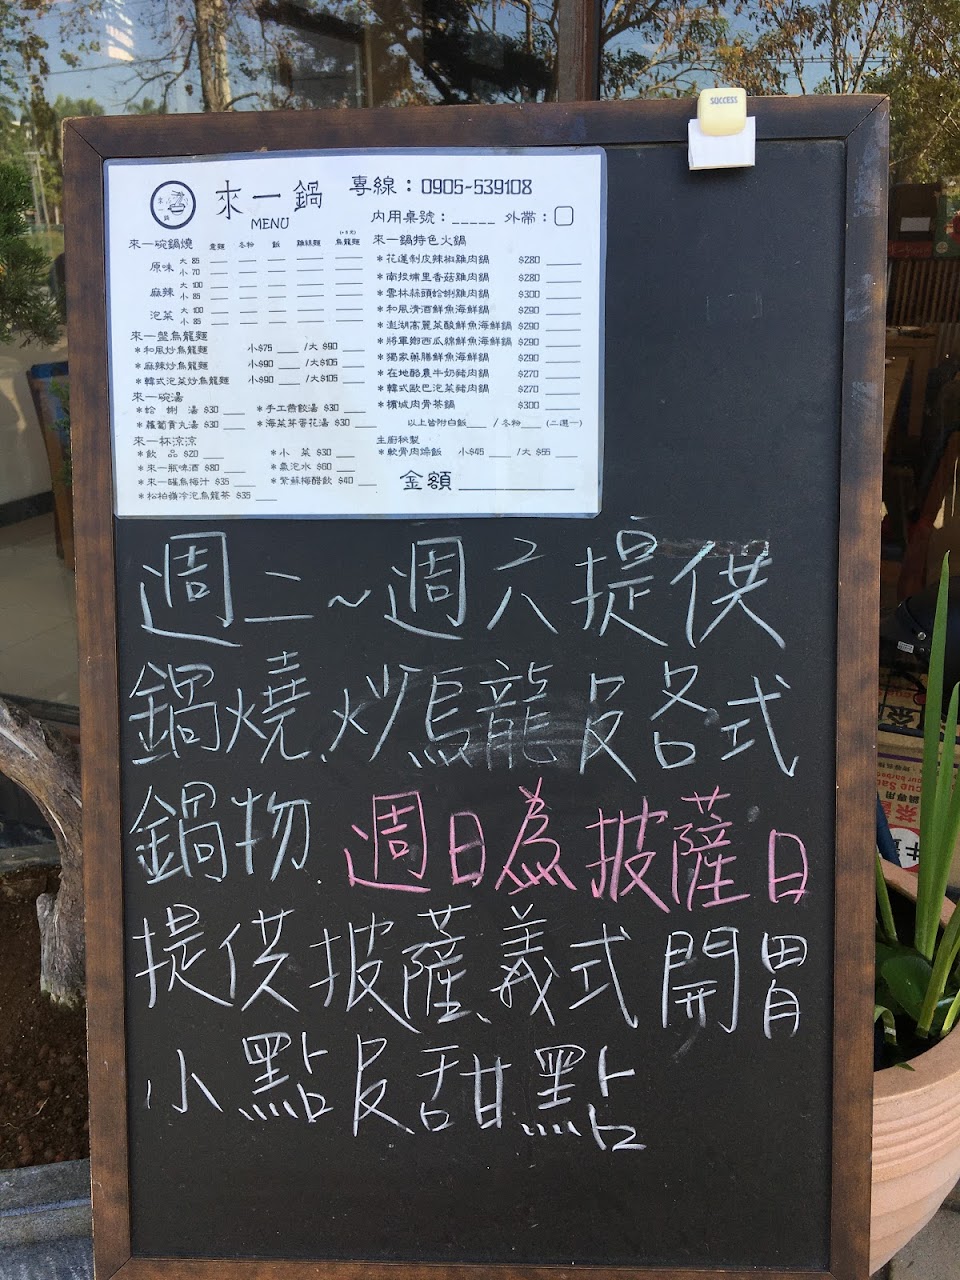 SUCCESS
來一鍋 專線：0905-539108
MENU
內用桌號：_____ 外帶：
來一碗鍋燒 意麵 冬粉 飯 雞絲麵 烏龍麵
原味 大 85
小 70
麻辣 大 100
小 85
泡菜 大 100
小 85
來一盤烏龍麵
＊和風炒烏龍麵 小$75 ___ /大 $90 ___
＊麻辣炒烏龍麵 小$90 ___ /大$105 ___
＊韓式泡菜炒烏龍麵 小$90 ___ /大$105 ___
來一碗湯
＊蛤 蜊 湯 $30 ___ ＊手工酓餃湯 $30 ___
＊蘿蔔貢丸湯 $30 ___ ＊海菜芽蛋花湯 $30 ___
來一杯涼涼
＊飲 品 $20 ___ ＊小 菜 $30 ___
＊來一瓶啤酒 $80 ___ ＊氣泡水 $60 ___
＊來一罐烏梅汁 $35 ___ ＊紫蘇梅醋飲 $40 ___
＊松柏嶺冷泡烏龍茶 $35 ___
來一鍋特色火鍋
＊花蓮剝皮辣椒雞肉鍋 $280 ____
＊南投埔里香菇雞肉鍋 $280 ____
＊雲林蒜頭蛤蜊雞肉鍋 $300 ____
＊和風清酒鮮魚海鮮鍋 $290 ____
＊澎湖高麗菜酸鮮魚海鮮鍋 $290 ____
＊將軍鄉西瓜綿鮮魚海鮮鍋 $290 ____
＊獨家藥膳鮮魚海鮮鍋 $290 ____
＊在地酪農牛奶豬肉鍋 $270 ____
＊韓式歐巴泡菜豬肉鍋 $270 ____
＊檳城肉骨茶鍋 $300 ____
以上皆附白飯___ / 冬粉___ (二選一)
主廚秘製
＊軟骨肉燥飯 小$45 ____ /大 $55 ____
金額__________
週二~週六提供
鍋燒、炒烏龍及各式
鍋物 週日為披薩日
提供披薩、義式開胃
小點及甜點